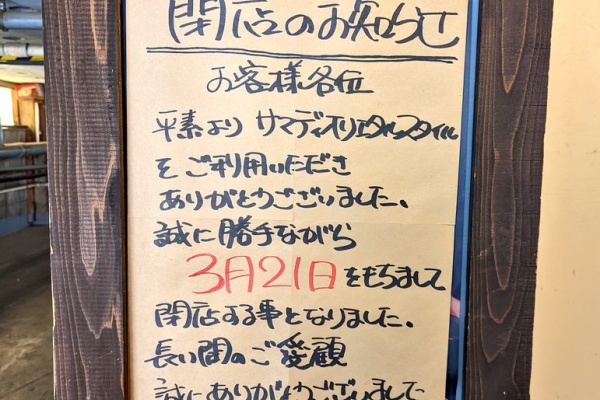 閉店のお知らせ
お客様各位
平素より サマディオリエタルスタイル
をご利用いただき
ありがとうございました。
誠に勝手ながら
3月21日をもちまして
閉店する事となりました。
長い間のご愛顧
誠にありがとうございました